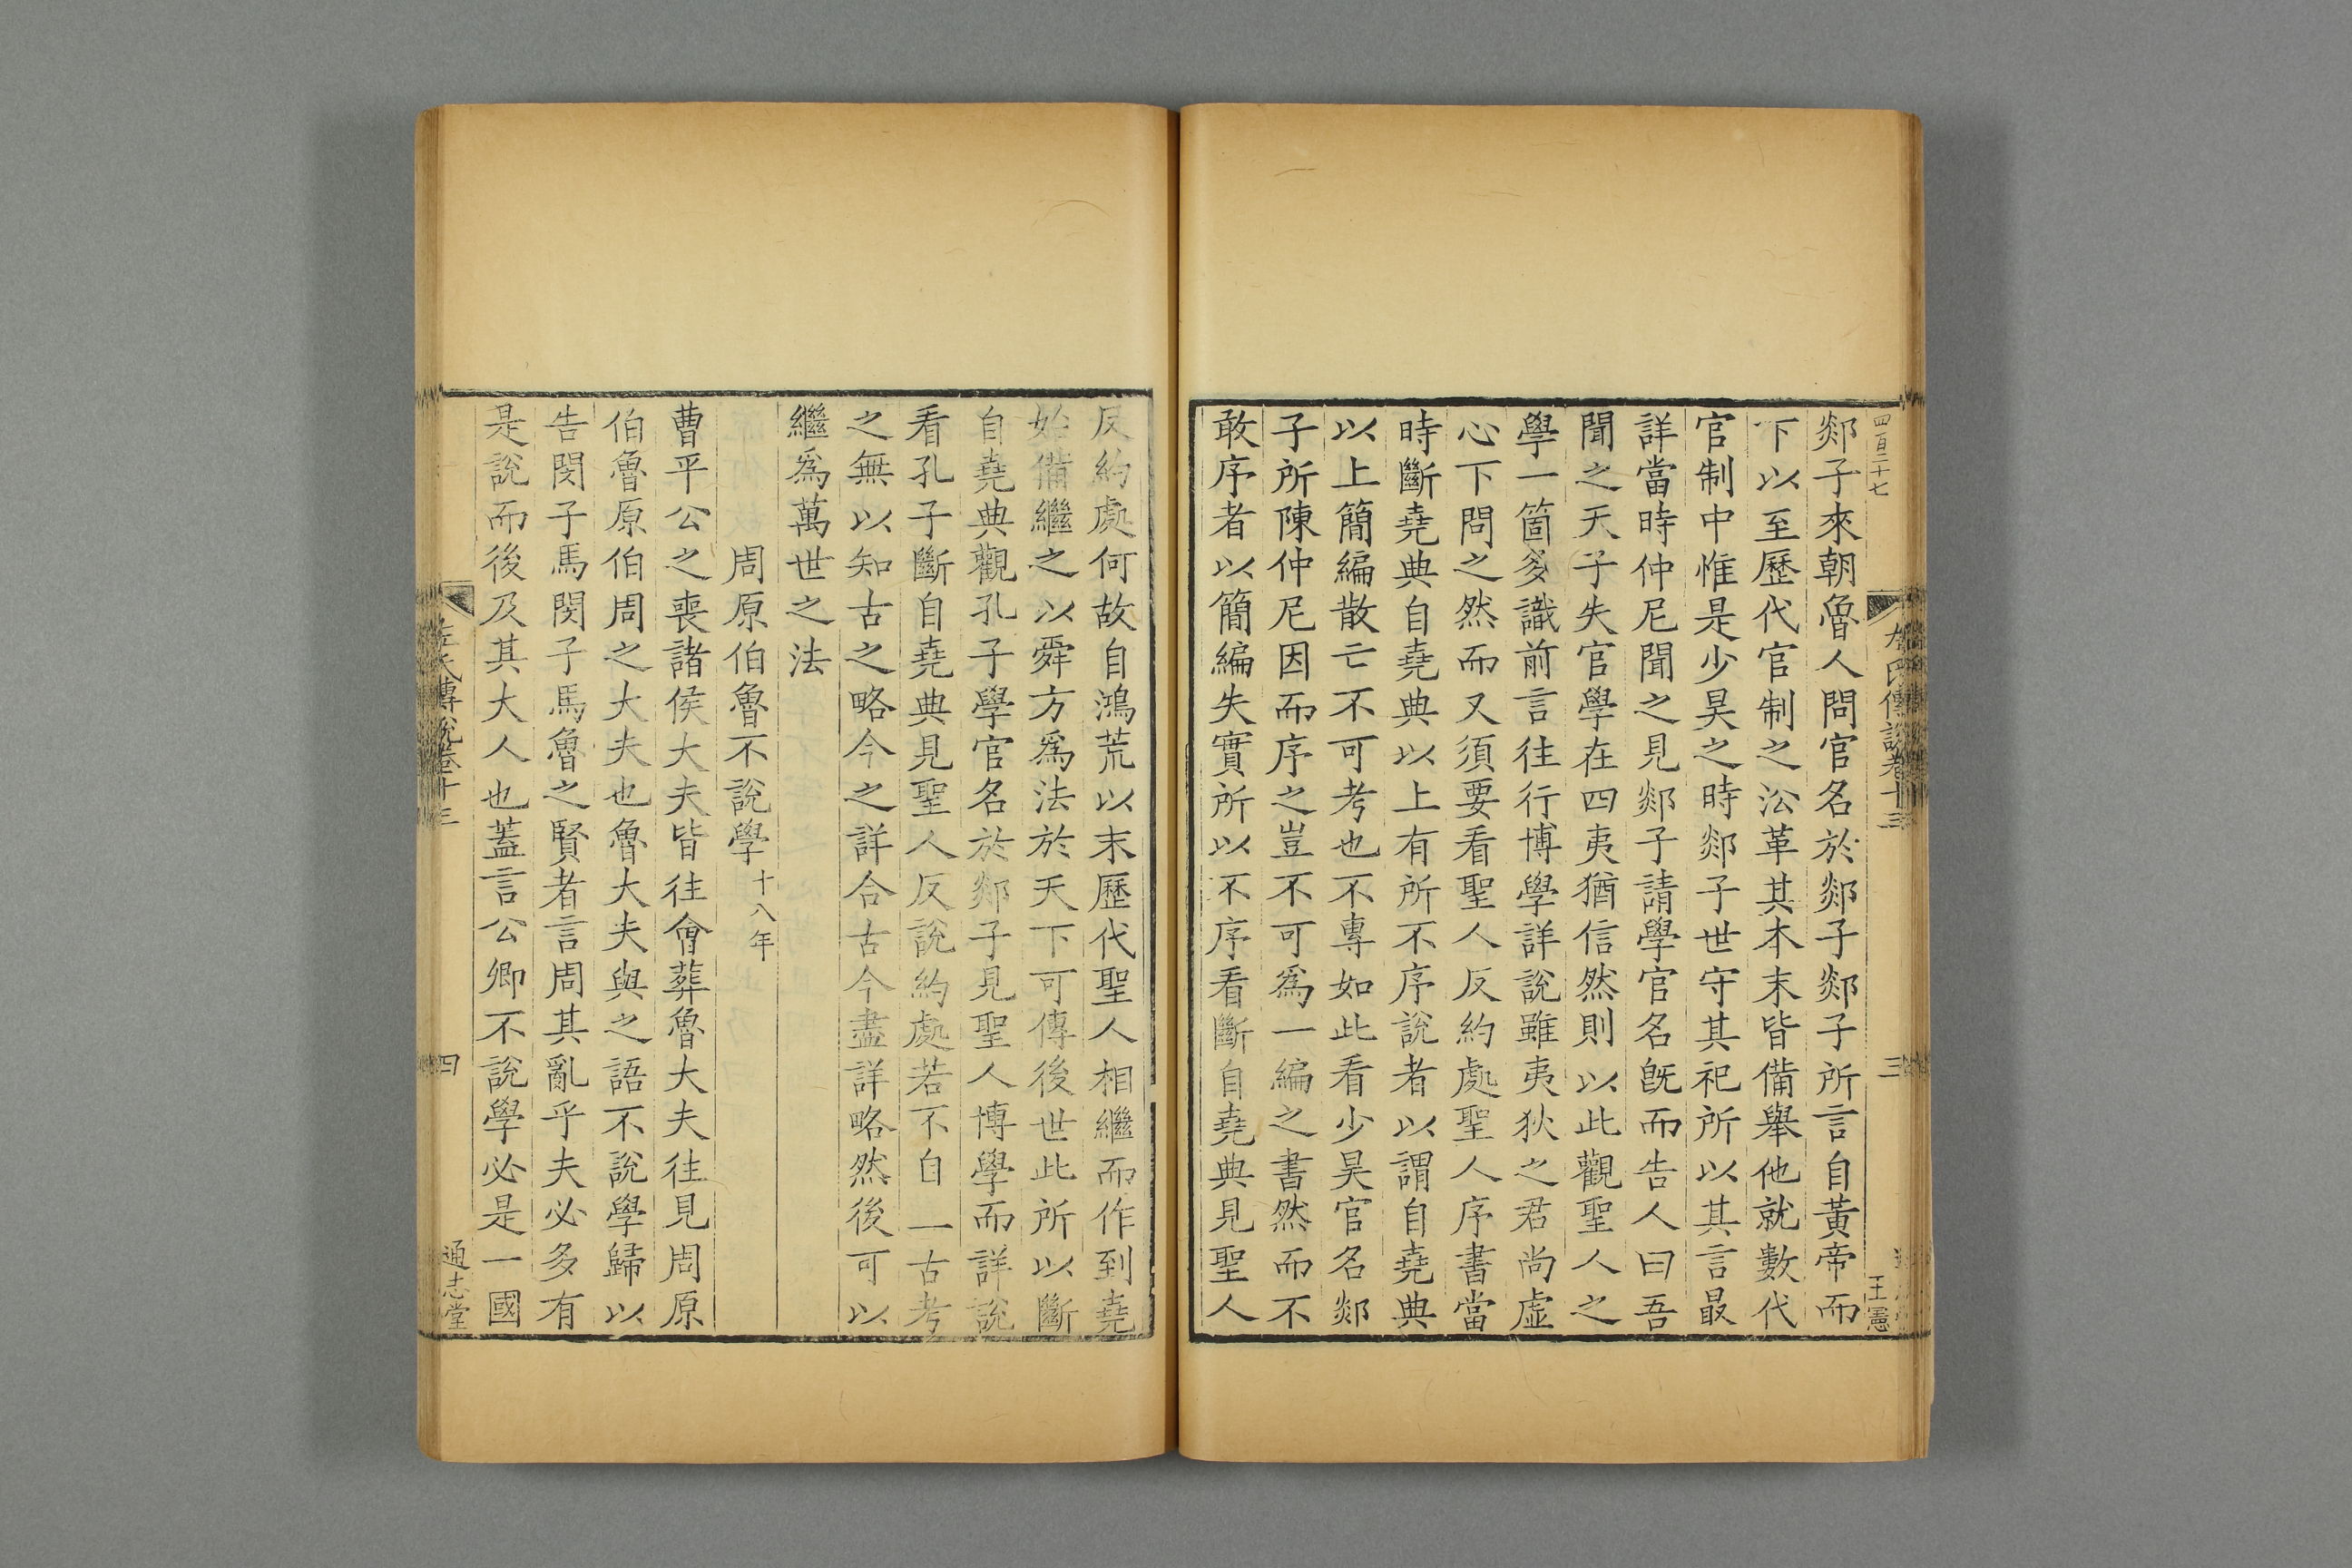 四百二十七
左氏傳說卷十三
三
王憲
郯子來朝魯人問官名於郯子郯子所言自黃帝而
下以至歷代官制之沿革其本末皆備舉他就數代
官制中惟是少昊之時郯子世守其祀所以其言最
詳當時仲尼聞之見郯子請學官名旣而告人曰吾
聞之天子失官學在四夷猶信然則以此觀聖人之
學一箇多識前言往行博學詳說雖夷狄之君尚虛
心下問之然而又須要看聖人反約處聖人序書當
時斷自堯典自堯典以上有所不序說者以謂自堯典
以上簡編散亡不可考也不專如此看少昊官名郯
子所陳仲尼因而序之豈不可爲一編之書然而不
敢序者以簡編失實所以不序看斷自堯典見聖人
反約處何故自鴻荒以末歷代聖人相繼而作到堯
始備繼之以舜方爲法於天下可傳後世此所以斷
自堯典觀孔子學官名於郯子見聖人博學而詳說
看孔子斷自堯典見聖人反說約處若不自一古考
之無以知古之略今之詳合古今盡詳略然後可以
繼爲萬世之法
周原伯魯不說學十八年
曹平公之喪諸侯大夫皆往會葬魯大夫往見周原
伯魯原伯周之大夫也魯大夫與之語不說學歸以
告閔子馬閔子馬魯之賢者言周其亂乎夫必多有
是說而後及其大人也蓋言公卿不說學必是一國
左氏傳說卷十三
四
通志堂